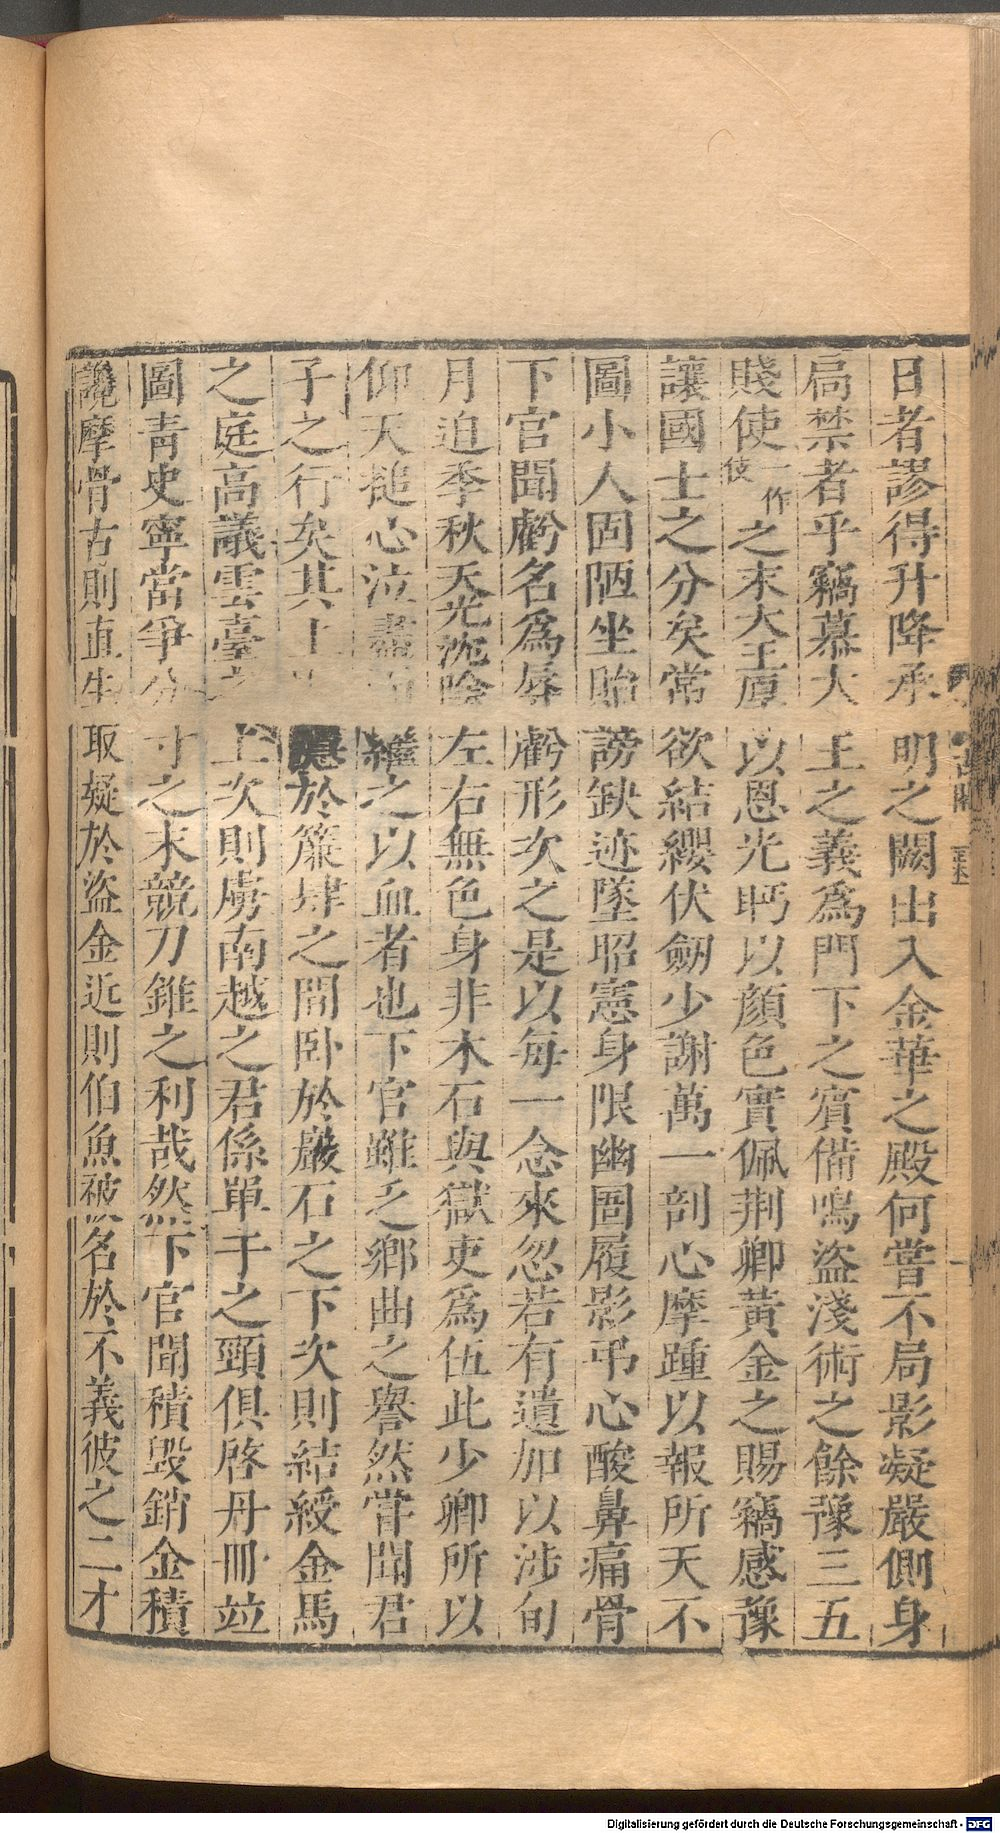 日者謬得升降承明之闕出入金華之殿何嘗不局影凝嚴側身
局禁者乎竊慕大王之義爲門下之賓備鳴盜淺術之餘豫三五
賤使一作伎之末大王惠以恩光眄以顏色實佩荆卿黃金之賜竊感豫
讓國士之分矣常欲結纓伏劒少謝萬一剖心摩踵以報所天不
圖小人固陋坐貽謗缺迹墜昭憲身限幽圄履影弔心酸鼻痛骨
下官聞虧名爲辱虧形次之是以每一念來忽若有遺加以涉旬
月迫季秋天光沈陰左右無色身非木石與獄吏爲伍此少卿所以
仰天搥心泣盡而繼之以血者也下官雖乏鄉曲之譽然嘗聞君
子之行矣其上於簾肆之間卧於巖石之下次則結綬金馬
之庭高議雲臺之上次則虜南越之君係單于之頸俱啓丹冊竝
圖青史寧當爭分寸之末競刀錐之利哉然下官聞積毀銷金積
讒摩骨古則直生取疑於盜金近則伯魚被名於不義彼之二才
Digitalisierung gefördert durch die Deutsche Forschungsgemeinschaft - DFG